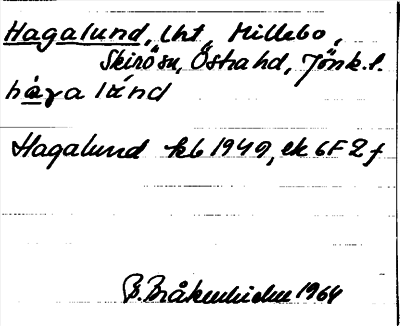 Hagalund, lht, Millebo,
Skirö sn, Östra hd, Jönk.l.
hàga lánd
Hagalund kb 1949, ek 6F2f
B. Bråkenhielm 1964